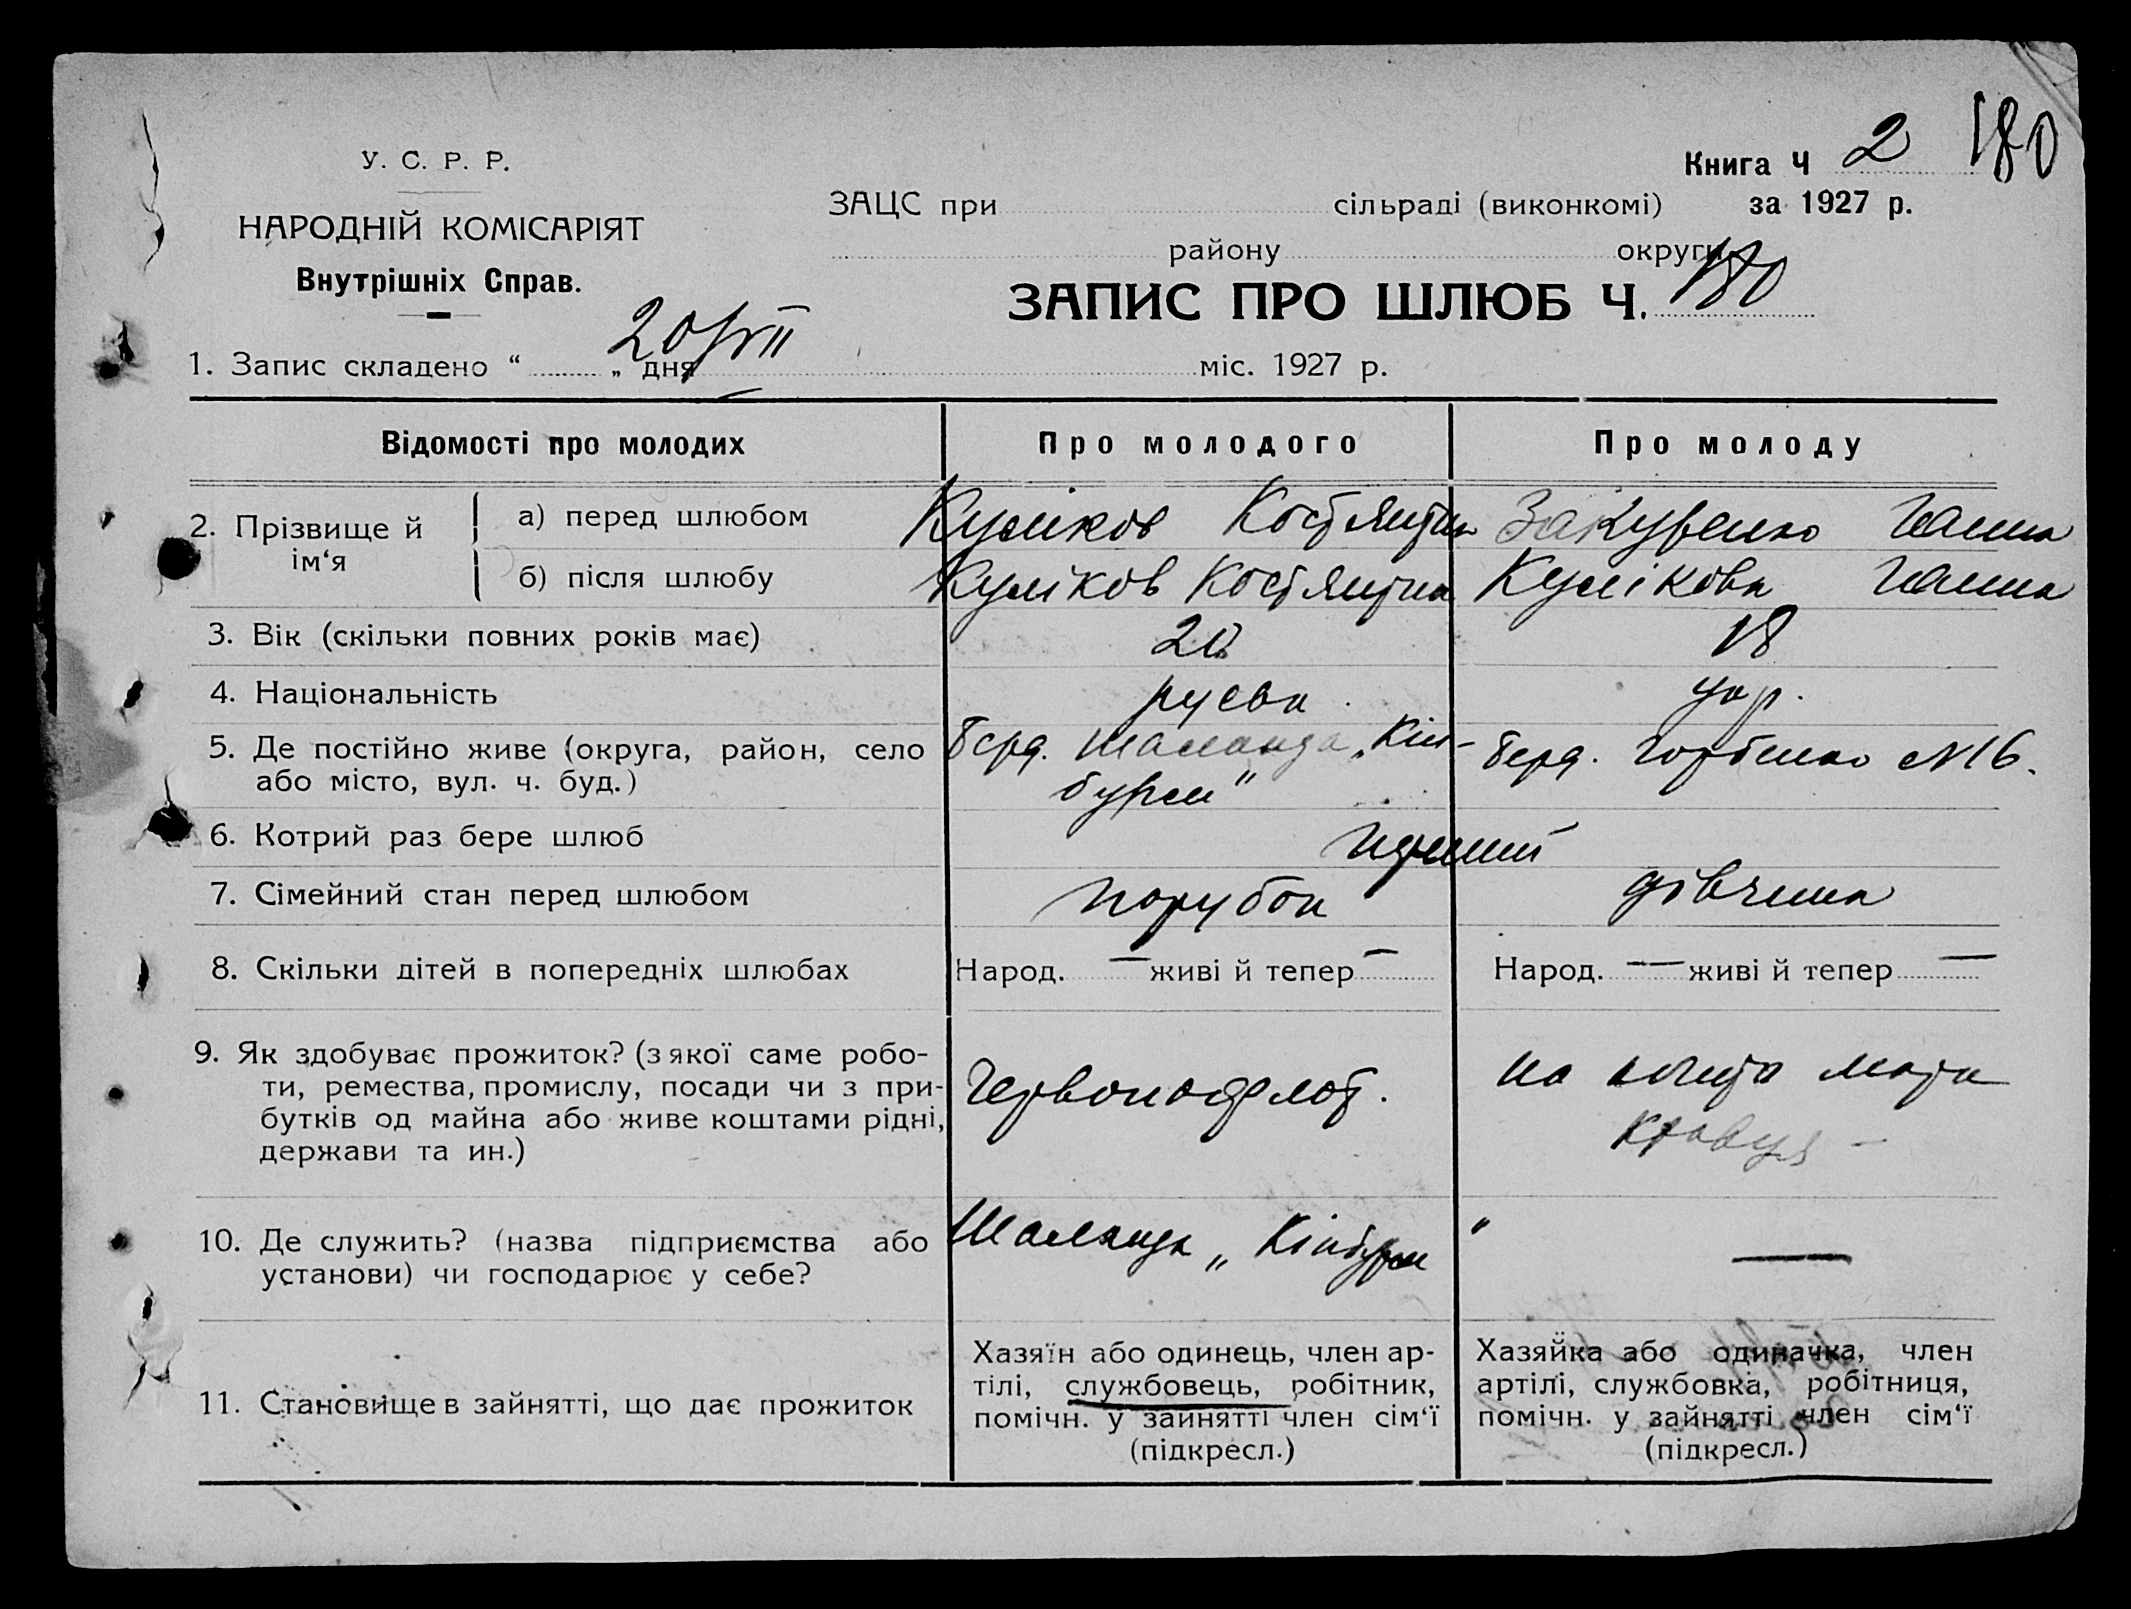 180
Книга Ч 2
У. С. Р. Р.
ЗАЦС при сільраді (виконкомі) за 1927 р.
НАРОДНІЙ КОМІСАРІЯТ
району округи
Внутрішніх Справ.
ЗАПИС ПРО ШЛЮБ Ч. 180
1. Запис складено “ „ дня 20/VII міс. 1927 р.
Відомості про молодих Про молодого Про молоду
2. Прізвище й ім‘я
а) перед шлюбом Куліков Костянтин Ганна
б) після шлюбу Куліков Костянтин Кулікова Ганна
3. Вік (скільки повних років має) 18
4. Національність руська укр.
5. Де постійно живе (округа, район, село
або місто, вул. ч. буд.)
Берд. Шаланда „Кін-
бурн“
Берд. Горбенко №16.
6. Котрий раз бере шлюб перший
7. Сімейний стан перед шлюбом парубок дівчина
8. Скільки дітей в попередніх шлюбах Народ. — живі й тепер — Народ. — живі й тепер —
9. Як здобуває прожиток? (з якої саме робо-
ти, ремества, промислу, посади чи з при-
бутків од майна або живе коштами рідні,
держави та ин.)
Червонофлот.
на
10. Де служить? (назва підприємства або
установи) чи господарює у себе?
Шаланда „Кінбурн“
—
11. Становище в зайнятті, що дає прожиток
Хазяїн або одинець, член ар-
тілі, службовець, робітник,
помічн. у зайнятті член сім‘ї
(підкресл.)
Хазяйка або одиначка, член
артілі, службовка, робітниця,
помічн. у зайнятті член сім‘ї
(підкресл.)